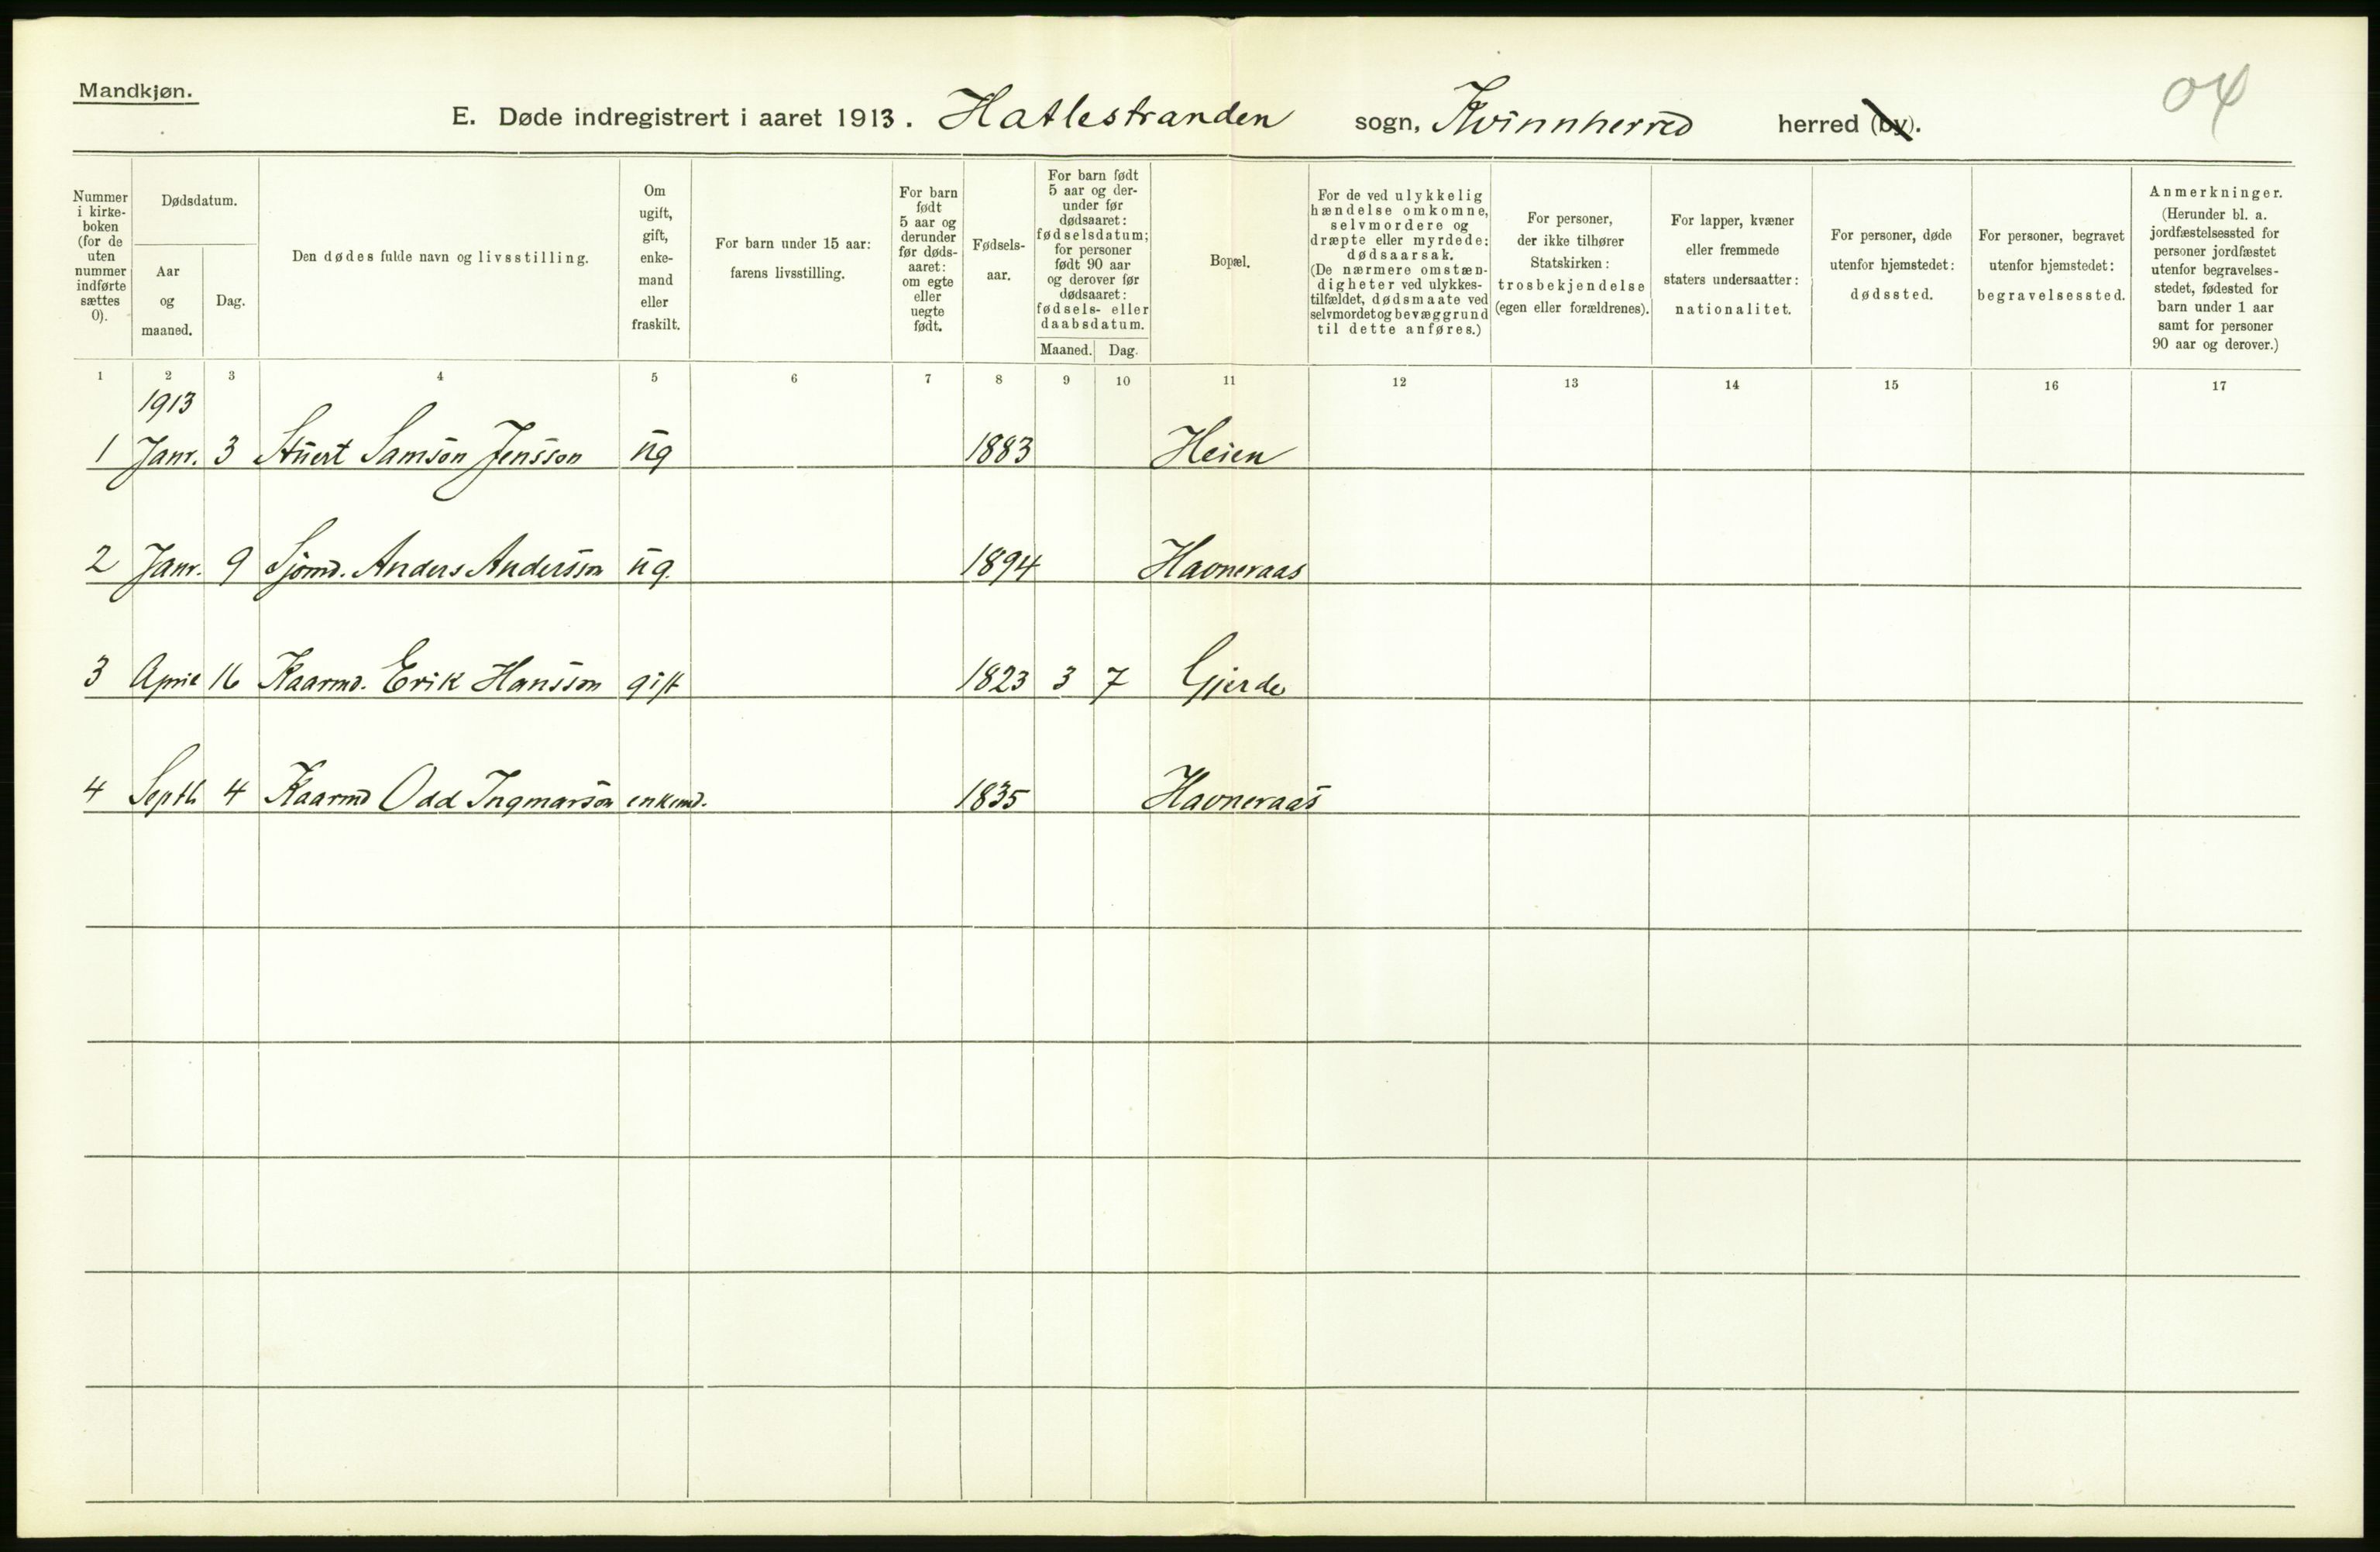 Mandkjøn.
E. Døde indregistrert i aaret 1913. Hatlestranden sogn, Kvinnherred herred (by).
04
Nummer i kirke- boken (for de uten nummer indførte sættes 0).
Dødsdatum.
Aar og maaned.
Dag.
Den dødes fulde navn og livsstilling.
Om ugift, gift, enke- mand eller fraskilt.
For barn under 15 aar: farens livsstilling.
For barn født 5 aar og derunder før døds- aaret: om egte eller uegte født.
Fødsels- aar.
For barn født 5 aar og der- under før dødsaaret: fødselsdatum; for personer født 90 aar og derover før dødsaaret: fødsels- eller daabsdatum.
Maaned.
Dag.
Bopæl.
For de ved ulykkelig hændelse omkomne, selvmordere og dræpte eller myrdede: dødsaarsak. (De nærmere omstæn- digheter ved ulykkes- tilfældet, dødsmaate ved selvmordet og bevæggrund til dette anføres.)
For personer, der ikke tilhører Statskirken: trosbekjendelse (egen eller forældrenes).
For lapper, kvæner eller fremmede staters undersaatter: nationalitet.
For personer, døde utenfor hjemstedet: dødssted.
For personer, begravet utenfor hjemstedet: begravelsessted.
Anmerkninger. (Herunder bl. a. jordfæstelsessted for personer jordfæstet utenfor begravelses- stedet, fødested for barn under 1 aar samt for personer 90 aar og derover.)
1 2 3 4 5 6 7 8 9 10 11 12 13 14 15 16 17
1913
1 Janr. 3 Samson Jensson ug 1883 Heien
2 Janr. 9 Sjømd. Anders Andersson ug. 1894 Havneraas
3 April 16 Kaarmd. Erik Hansson gift 1823 3 7 Gjerde
4 Septb 4 Kaarmd Odd Ingmarson enkemd. 1835 Havneraas